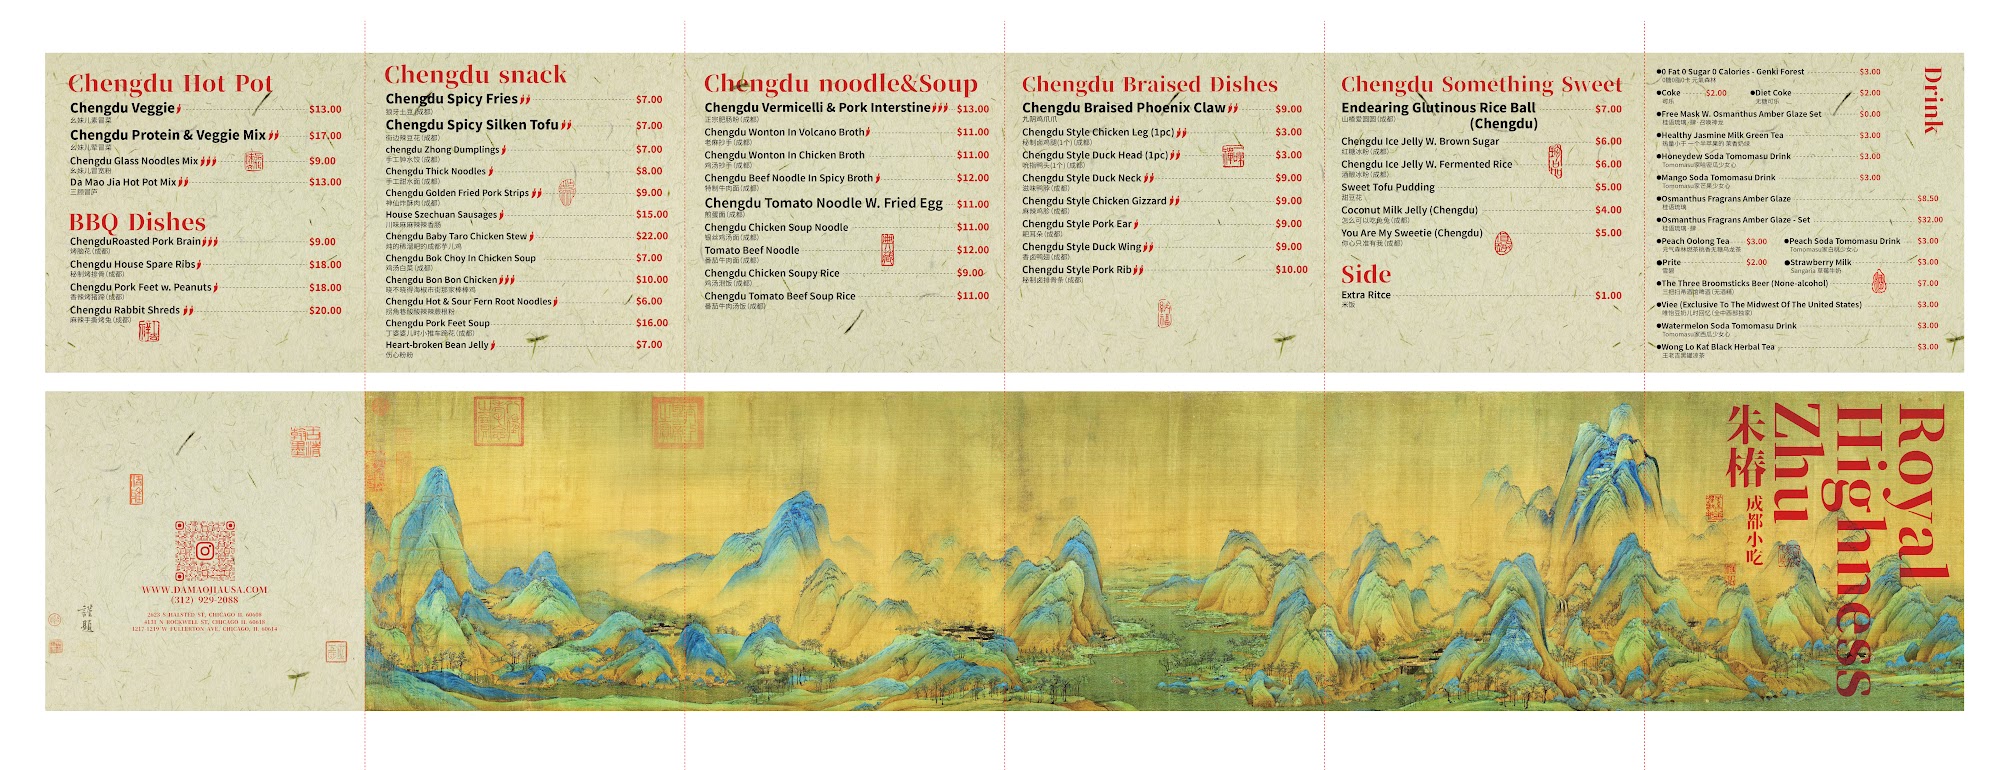 Chengdu Hot Pot
Chengdu Veggie $13.00
幺妹儿素冒菜
Chengdu Protein & Veggie Mix $17.00
幺妹儿荤冒菜
Chengdu Glass Noodles Mix $9.00
幺妹儿冒宽粉
Da Mao Jia Hot Pot Mix $13.00
三顾冒庐
BBQ Dishes
ChengduRoasted Pork Brain $9.00
烤脑花(成都)
Chengdu House Spare Ribs $18.00
秘制烤排骨(成都)
Chengdu Pork Feet w. Peanuts $18.00
香辣烤猪蹄(成都)
Chengdu Rabbit Shreds $20.00
麻辣手撕烤兔(成都)
Chengdu snack
Chengdu Spicy Fries $7.00
狼牙土豆(成都)
Chengdu Spicy Silken Tofu $7.00
街边辣豆花(成都)
chengdu Zhong Dumplings $7.00
手工钟水饺(成都)
Chengdu Thick Noodles $8.00
手工甜水面(成都)
Chengdu Golden Fried Pork Strips $9.00
神仙炸酥肉(成都)
House Szechuan Sausages $15.00
川味麻麻辣辣香肠
Chengdu Baby Taro Chicken Stew $22.00
炖的稀溜耙的成都芋儿鸡
Chengdu Bok Choy In Chicken Soup $7.00
鸡汤白菜(成都)
Chengdu Bon Bon Chicken $10.00
Chengdu Hot & Sour Fern Root Noodles $6.00
拐角巷酸酸辣辣蕨根粉
Chengdu Pork Feet Soup $16.00
丁婆婆儿时小推车蹄花(成都)
Heart-broken Bean Jelly $7.00
伤心粉粉
Chengdu noodle&Soup
Chengdu Vermicelli & Pork Interstine $13.00
正宗肥肠粉(成都)
Chengdu Wonton In Volcano Broth $11.00
老麻抄手(成都)
Chengdu Wonton In Chicken Broth $11.00
鸡汤抄手(成都)
Chengdu Beef Noodle In Spicy Broth $12.00
特制牛肉面(成都)
Chengdu Tomato Noodle W. Fried Egg $11.00
煎蛋面(成都)
Chengdu Chicken Soup Noodle $11.00
银丝鸡汤面(成都)
Tomato Beef Noodle $12.00
番茄牛肉面(成都)
Chengdu Chicken Soupy Rice $9.00
鸡汤泡饭(成都)
Chengdu Tomato Beef Soup Rice $11.00
番茄牛肉汤饭(成都)
Chengdu Braised Dishes
Chengdu Braised Phoenix Claw $9.00
九阴鸡爪爪
Chengdu Style Chicken Leg (1pc) $3.00
秘制卤鸡腿(1个)(成都)
Chengdu Style Duck Head (1pc) $3.00
吮指鸭头(1个)(成都)
Chengdu Style Duck Neck $9.00
滋味鸭脖(成都)
Chengdu Style Chicken Gizzard $9.00
麻辣鸡胗(成都)
Chengdu Style Pork Ear $9.00
耙耳朵(成都)
Chengdu Style Duck Wing $9.00
香卤鸭翅(成都)
Chengdu Style Pork Rib $10.00
秘制卤排骨条(成都)
Chengdu Something Sweet
Endearing Glutinous Rice Ball $7.00
(Chengdu)
山楂爱圆圆(成都)
Chengdu Ice Jelly W. Brown Sugar $6.00
红糖冰粉(成都)
Chengdu Ice Jelly W. Fermented Rice $6.00
酒酿冰粉(成都)
Sweet Tofu Pudding $5.00
甜豆花
Coconut Milk Jelly (Chengdu) $4.00
怎么可以吃兔兔(成都)
You Are My Sweetie (Chengdu) $5.00
你心只准有我(成都)
Side
Extra Ritce $1.00
米饭
Drink
●0 Fat 0 Sugar 0 Calories - Genki Forest $3.00
0糖0脂0卡 元气森林
●Coke $2.00 ●Diet Coke $2.00
可乐 无糖可乐
●Free Mask W. Osmanthus Amber Glaze Set $0.00
●Healthy Jasmine Milk Green Tea $3.00
热量小于一个半苹果的 茉香奶绿
●Honeydew Soda Tomomasu Drink $3.00
Tomomasu家哈密瓜少女心
●Mango Soda Tomomasu Drink $3.00
Tomomasu家芒果少女心
●Osmanthus Fragrans Amber Glaze $8.50
桂语琉璃
●Osmanthus Fragrans Amber Glaze - Set $32.00
●Peach Oolong Tea $3.00 ●Peach Soda Tomomasu Drink $3.00
元气森林燃茶桃香无糖乌龙茶 Tomomasu家白桃少女心
●Prite $2.00 ●Strawberry Milk $3.00
雪碧 Sangaria 草莓牛奶
●The Three Broomsticks Beer (None-alcohol) $7.00
三把扫帚酒馆啤酒(无酒精)
●Viee (Exclusive To The Midwest Of The United States) $3.00
唯怡豆奶儿时回忆(全中西部独家)
●Watermelon Soda Tomomasu Drink $3.00
Tomomasu家西瓜少女心
●Wong Lo Kat Black Herbal Tea $3.00
王老吉黑罐凉茶
WWW.DAMAOJIAUSA.COM
(312) 929-2088
2623 N HALSTED ST, CHICAGO IL 60608
4131 N ROCKWELL ST, CHICAGO IL 60618
1217-1219 W FULLERTON AVE, CHICAGO, IL 60614
Royal
Highness
Zhu
朱椿
成都小吃